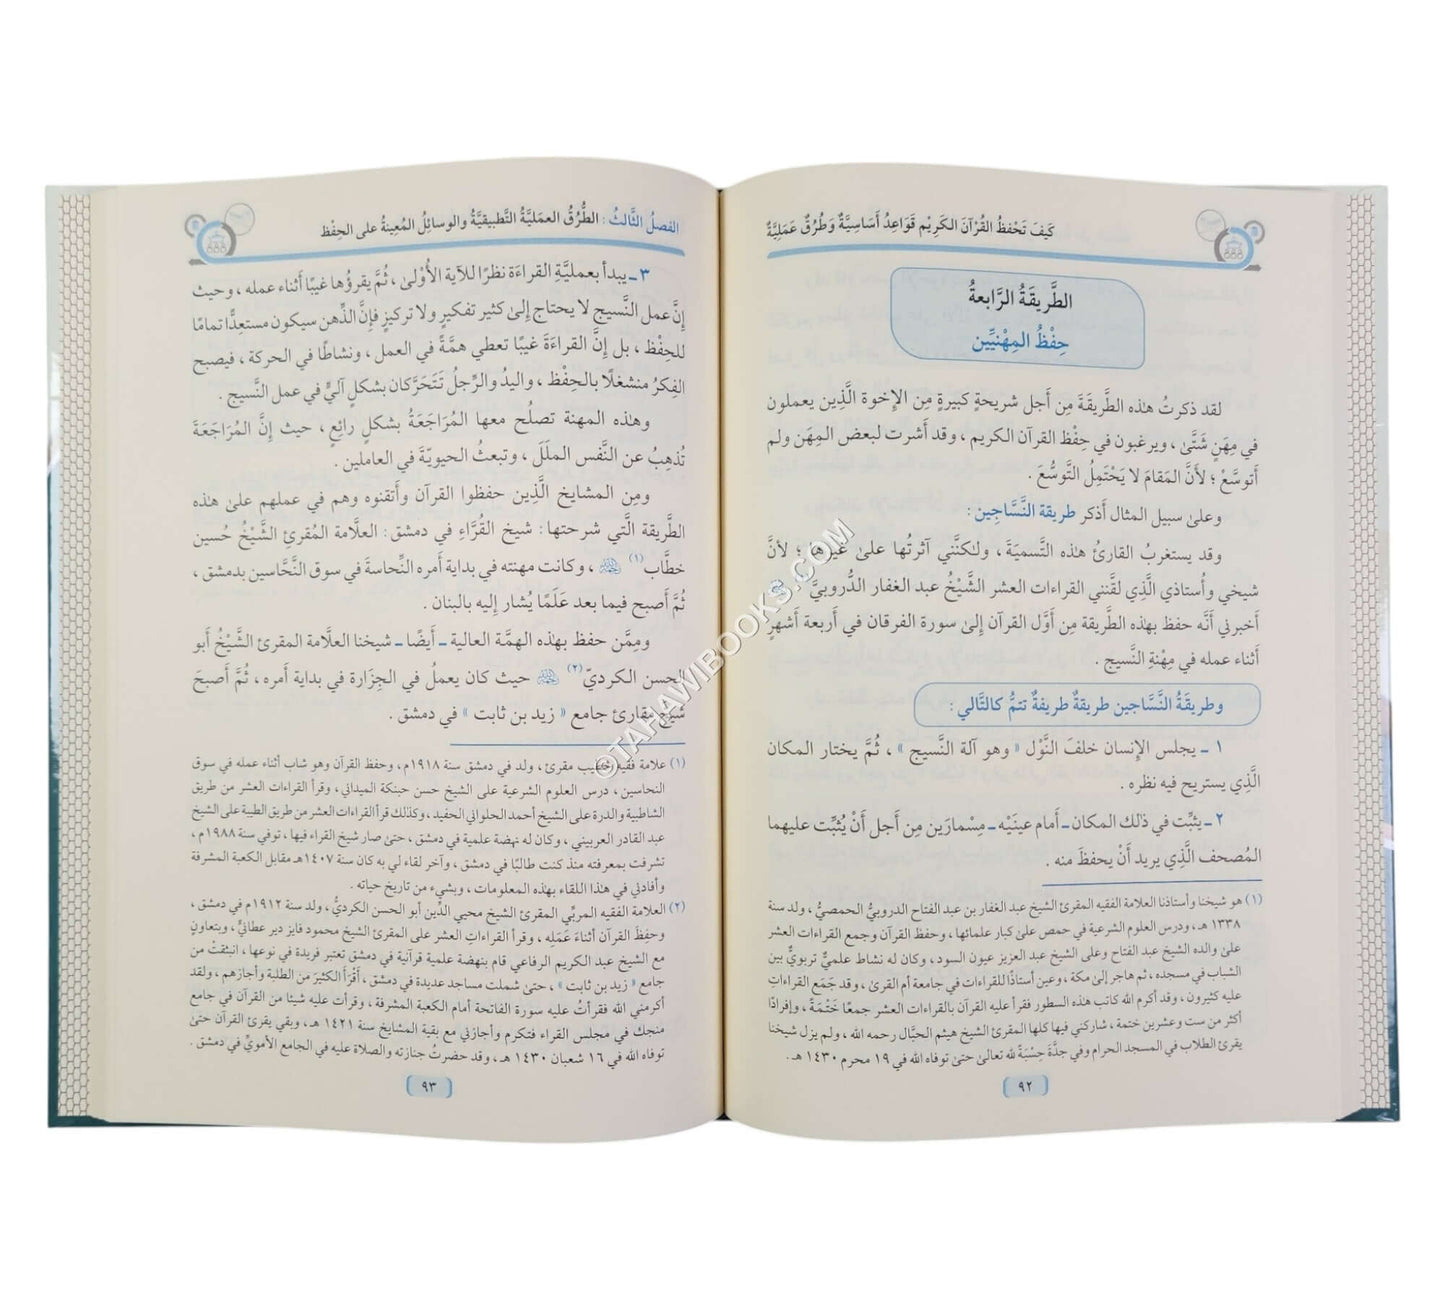 كَيفَ تَحْفَظُ القُرْآنَ الكَرِيْم قَوَاعِدُ أَسَاسِيَّةٌ وَطُرُقٌ عَمَلِيَّةٌ
الطَّرِيقَةُ الرَّابعةُ
حِفْظُ المِهْنيِّين
لقد ذكرتُ هذه الطَّريقَةَ مِن أجل شريحةٍ كبيرةٍ مِن الإخوة الَّذِين يعملون
في مِهَنٍ شتَّىٰ ، ويرغبون في حِفْظ القرآن الكريم ، وقد أشرت لبعض المِهَن ولم
أتوسَّعْ ؛ لأنَّ المَقامَ لا يَحْتَمِلُ التَّوسُّعَ .
وعلىٰ سبيل المثال أذكر طريقة النَّسَّاجِين :
وقد يستغربُ القارئُ هذه التَّسميَةَ ، ولكنَّني آثرتُها علىٰ غيرها ؛ لأنَّ
شيخي وأُستاذي الَّذي لقَّنني القراءات العشر الشَّيْخُ عبد الغفار الدُّروبيَّ (١)
أخبرني أنَّه حفظ بهذه الطَّريقة مِن أوَّل القرآن إلىٰ سورة الفرقان في أربعة أشهرٍ
أثناء عمله في مِهْنةِ النَّسيج .
وطريقَةُ النَّسَّاجين طريقةٌ طريفةٌ تتمُّ كالتَّالي :
١ ـ يجلس الإنسان خلفَ النَّوْل « وهو آلة النَّسيج » ، ثُمَّ يختار المكان
الَّذي يستريح فيه نظره .
٢ ـ يثبِّت في ذلك المكان ـ أمام عينَيْه ـ مِسْمارَين مِن أجل أنْ يُثبِّت عليهما
المُصحف الَّذي يريد أنْ يحفظَ منه .
(١) هو شيخنا وأستاذنا العلامة الفقيه المقرئ الشيخ عبد الغفار بن عبد الفتاح الدروبيُّ الحمصيُّ ، ولد سنة
١٣٣٨ هـ ، ودرس العلوم الشرعية في حمص علىٰ كبار علمائها ، وحفظ القرآن وجمع القراءات العشر
علىٰ والده الشيخ عبد الفتاح وعلى الشيخ عبد العزيز عيون السود ، وكان له نشاط علميٌّ تربويٌّ بين
الشباب في مسجده ، ثم هاجر إلىٰ مكة ، وعين أستاذًا للقراءات في جامعة أم القرىٰ ، وقد جَمَع القراءاتِ
عليه كثيرون ، وقد أكرم الله كاتب هذه السطور فقرأ عليه القرآن بالقراءات العشر جمعًا خَتْمَةً ، وإفرادًا
أكثر من ست وعشرين ختمة ، شاركني فيها كلها المقرئ الشيخ هيثم الحبَّال رحمه الله ، ولم يزل شيخنا
يقرئ الطلاب في المسجد الحرام وفي جدَّة حِسْبَةً لله تعالىٰ حتىٰ توفاه الله في ١٩ محرم ١٤٣٠ هـ .
٩٢
الفصلُ الثَّالثُ : الطُّرُقُ العمَليَّةُ التَّطبيقيَّةُ والوسائِلُ المُعِينةُ على الحِفْظ
٣ ـ يبدأ بعمليَّةِ القراءَة نظرًا للآية الأُوْلىٰ ، ثُمَّ يقرؤُها غيبًا أثناء عمله ، وحيث
إنَّ عمل النَّسيج لا يحتاج إلىٰ كثير تفكيرٍ ولا تركيزٍ فإنَّ الذِّهن سيكون مستعِدًّا تمامًا
للحِفْظ ، بل إنَّ القراءَةَ غيبًا تعطي همَّةً في العمل ، ونشاطًا في الحركة ، فيصبح
الفِكرُ منشغلًا بالحِفْظ ، واليدُ والرِّجلُ تَتَحَرَّكان بشكلٍ آليٍّ في عمل النَّسيج .
وهذه المهنة تصلُح معها المُرَاجَعَةُ بشكلٍ رائِعٍ ، حيث إنَّ المُرَاجَعَةَ
تُذهِبُ عن النَّفس الملَلَ ، وتبعثُ الحيويّةَ في العاملين .
ومِن المشايخ الَّذِين حفظوا القرآن وأتقنوه وهم في عملهم علىٰ هذه
الطَّريقة الَّتي شرحتها : شيخ القُرَّاءِ في دمشق : العلَّامة المُقرئ الشَّيْخُ حُسين
خطَّاب (١) ، وكانت مهنته في بداية أمره النِّحاسةَ في سوق النَّحَّاسين بدمشق ،
ثُمَّ أصبح فيما بعد عَلَمًا يُشار إليه بالبنان .
وممَّن حفظ بهذه الهمَّة العالية ـ أيضًا ـ شيخنا العلَّامة المقرئ الشَّيْخُ أبو
الحسن الكرديّ (٢) حيث كان يعملُ في الجِزَارة في بداية أمره ، ثُمَّ أصبحَ
شيخَ مقارئ جامع « زيد بن ثابت » في دمشق .
(١) علامة فقيه خطيب مقرئ ، ولد في دمشق سنة ١٩١٨م ، وحفظ القرآن وهو شاب أثناء عمله في سوق
النحاسين ، درس العلوم الشرعية على الشيخ حسن حبنكة الميداني ، وقرأ القراءات العشر من طريق
الشاطبية والدرة على الشيخ أحمد الحلواني الحفيد ، وكذلك قرأ القراءات العشر من طريق الطيبة على الشيخ
عبد القادر العربيني ، وكان له نهضة علمية في دمشق ، حتىٰ صار شيخ القراء فيها ، توفي سنة ١٩٨٨م ،
تشرفت بمعرفته منذ كنت طالبًا في دمشق ، وآخر لقاء لي به كان سنة ١٤٠٧هـ مقابل الكعبة المشرفة
وأفادني في هذا اللقاء بهذه المعلومات ، وبشيء من تاريخ حياته .
(٢) العلامة الفقيه المربِّي المقرئ الشيخ محيي الدِّين أبو الحسن الكرديُّ ، ولد سنة ١٩١٢م في دمشق ،
وحفِظَ القرآن أثناءَ عَمَلِه ، وقرأ القراءاتِ العشر على المقرئ الشيخ محمود فايز دير عطاني ، وبتعاونٍ
مع الشيخ عبد الكريم الرفاعي قام بنهضة علمية قرآنية في دمشق تعتبر فريدة في نوعها ، انبثقتْ من
جامع « زيد بن ثابت » ، حتىٰ شملت مساجد عديدة في دمشق ، أقرأ الكثيرَ من الطلبة وأجازهم ، ولقد
أكرمني الله فقرأتُ عليه سورة الفاتحة أمام الكعبة المشرفة ، وقرأت عليه شيئا من القرآن في جامع
منجك في مجلس القراء فتكرم وأجازني مع بقية المشايخ سنة ١٤٢١ هـ ، وبقي يقرئ القرآن حتىٰ
توفاه الله في ١٦ شعبان ١٤٣٠ هـ ، وقد حضرتُ جنازته والصلاة عليه في الجامع الأمويِّ في دمشق .
٩٣
©TAHAWIBOOKS.COM